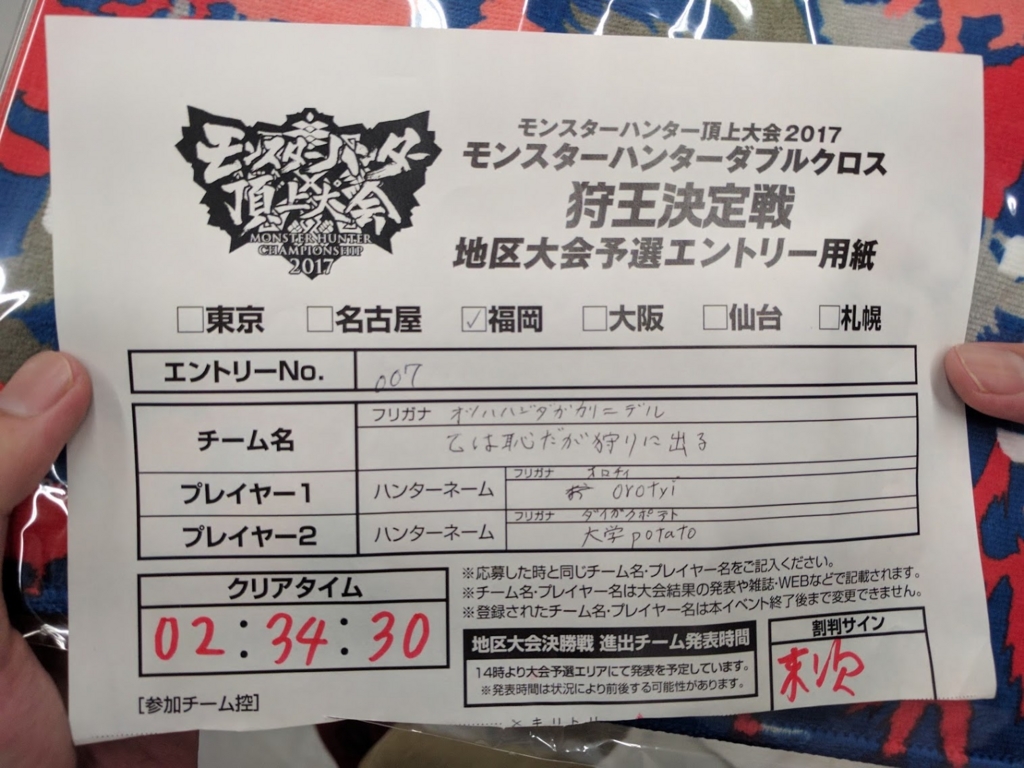 モンスターハンター
頂上大会
MONSTER HUNTER
CHAMPIONSHIP
2017
モンスターハンター頂上大会2017
モンスターハンターダブルクロス
狩王決定戦
地区大会予選エントリー用紙
□東京 □名古屋 ☑福岡 □大阪 □仙台 □札幌
エントリーNo. 007
フリガナ オツハハジダガカリニデル
チーム名 乙は恥だが狩りに出る
フリガナ オロチィ
プレイヤー1 ハンターネーム orotyi
フリガナ ダイガクポテト
プレイヤー2 ハンターネーム 大学potato
クリアタイム
02:34:30
[参加チーム控]
※応募した時と同じチーム名・プレイヤー名をご記入ください。
※チーム名・プレイヤー名は大会結果の発表や雑誌・WEBなどで記載されます。
※登録されたチーム名・プレイヤー名は本イベント終了後まで変更できません。
地区大会決勝戦 進出チーム発表時間
14時より大会予選エリアにて発表を予定しています。
※発表時間は状況により前後する可能性があります。
割判サイン
末次
キリトリ